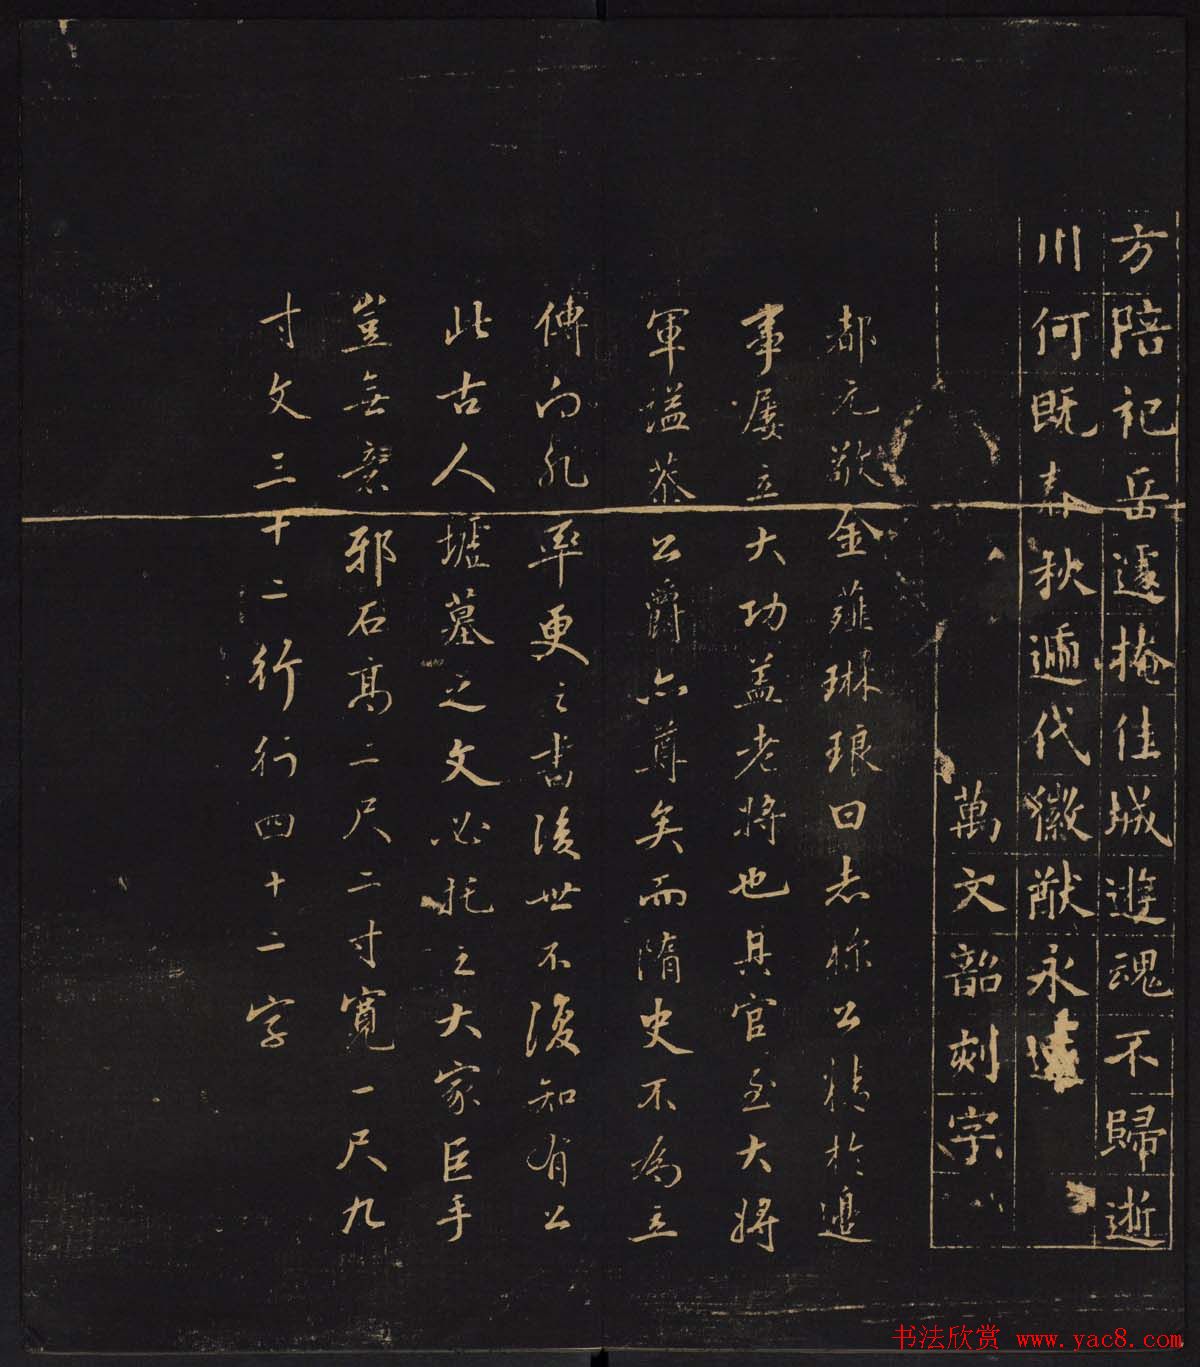 方陪祀岳遽掩佳城遊魂不歸逝
川何既春秋遞代徽猷永遠
萬文韶刻字
都元敬金薤琳琅曰志称公精於邊
事屡立大功盖老將也具官至大將
軍謚恭公爵亦尊矣而隋史不為立
傳向非率更之書後世不復知有公
此古人墟墓之文必托之大家巨手
豈無意邪石高二尺二寸寬一尺九
寸文三十二行行四十二字
书法欣赏 www.yac8.com